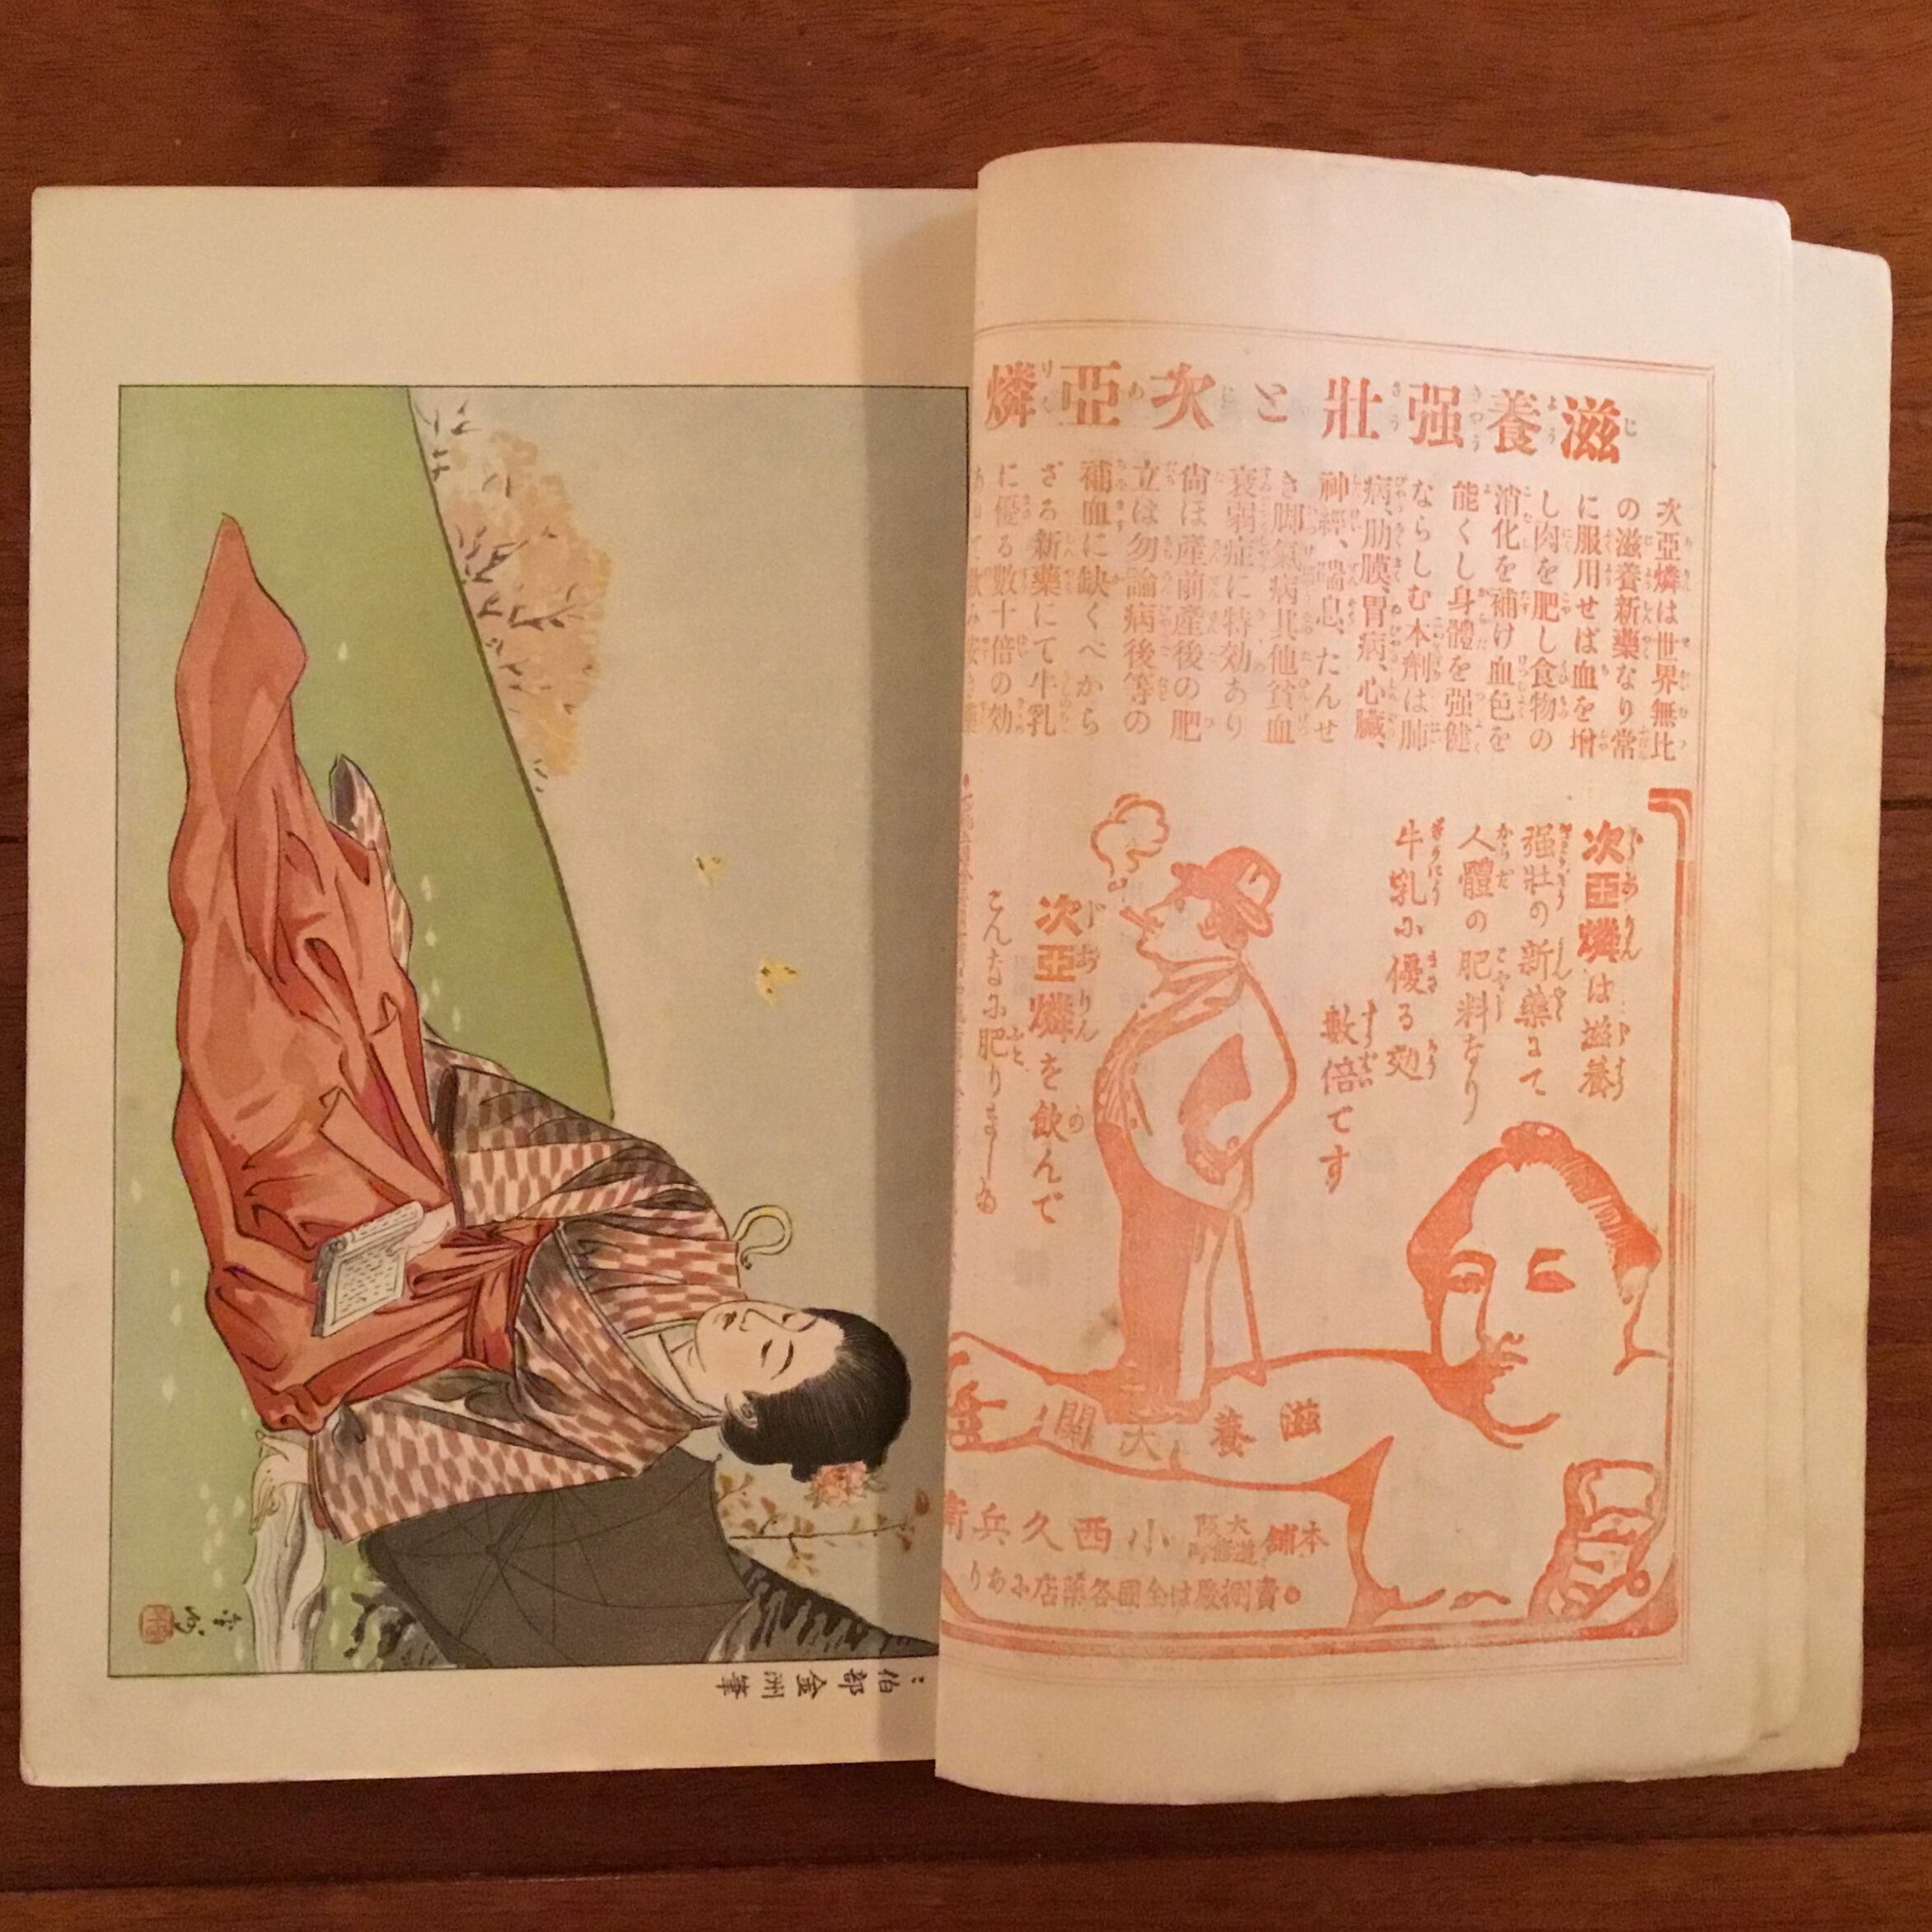 滋養强壯と次亞燐
次亞燐は世界無比
の滋養新藥なり常
に服用せば血を增
し肉を肥し食物の
消化を補け血色を
能くし身體を强健
ならしむ本劑は肺
病、肋膜、胃病、心臟、
神經、喘息、たんせ
き脚氣病其他貧血
衰弱症に特効あり
尙ほ產前產後の肥
立は勿論病後等の
補血に缺くべから
ざる新藥にて牛乳
に優る數十倍の効
次亞燐は滋養
强壯の新藥にて
人體の肥料なり
牛乳に優る効
數倍です
次亞燐を飮んで
こんなに肥りました
滋養大關
本舖 大阪道修町 小西久兵衛
賣捌所は全國各藥店にあり
伯部金洲筆